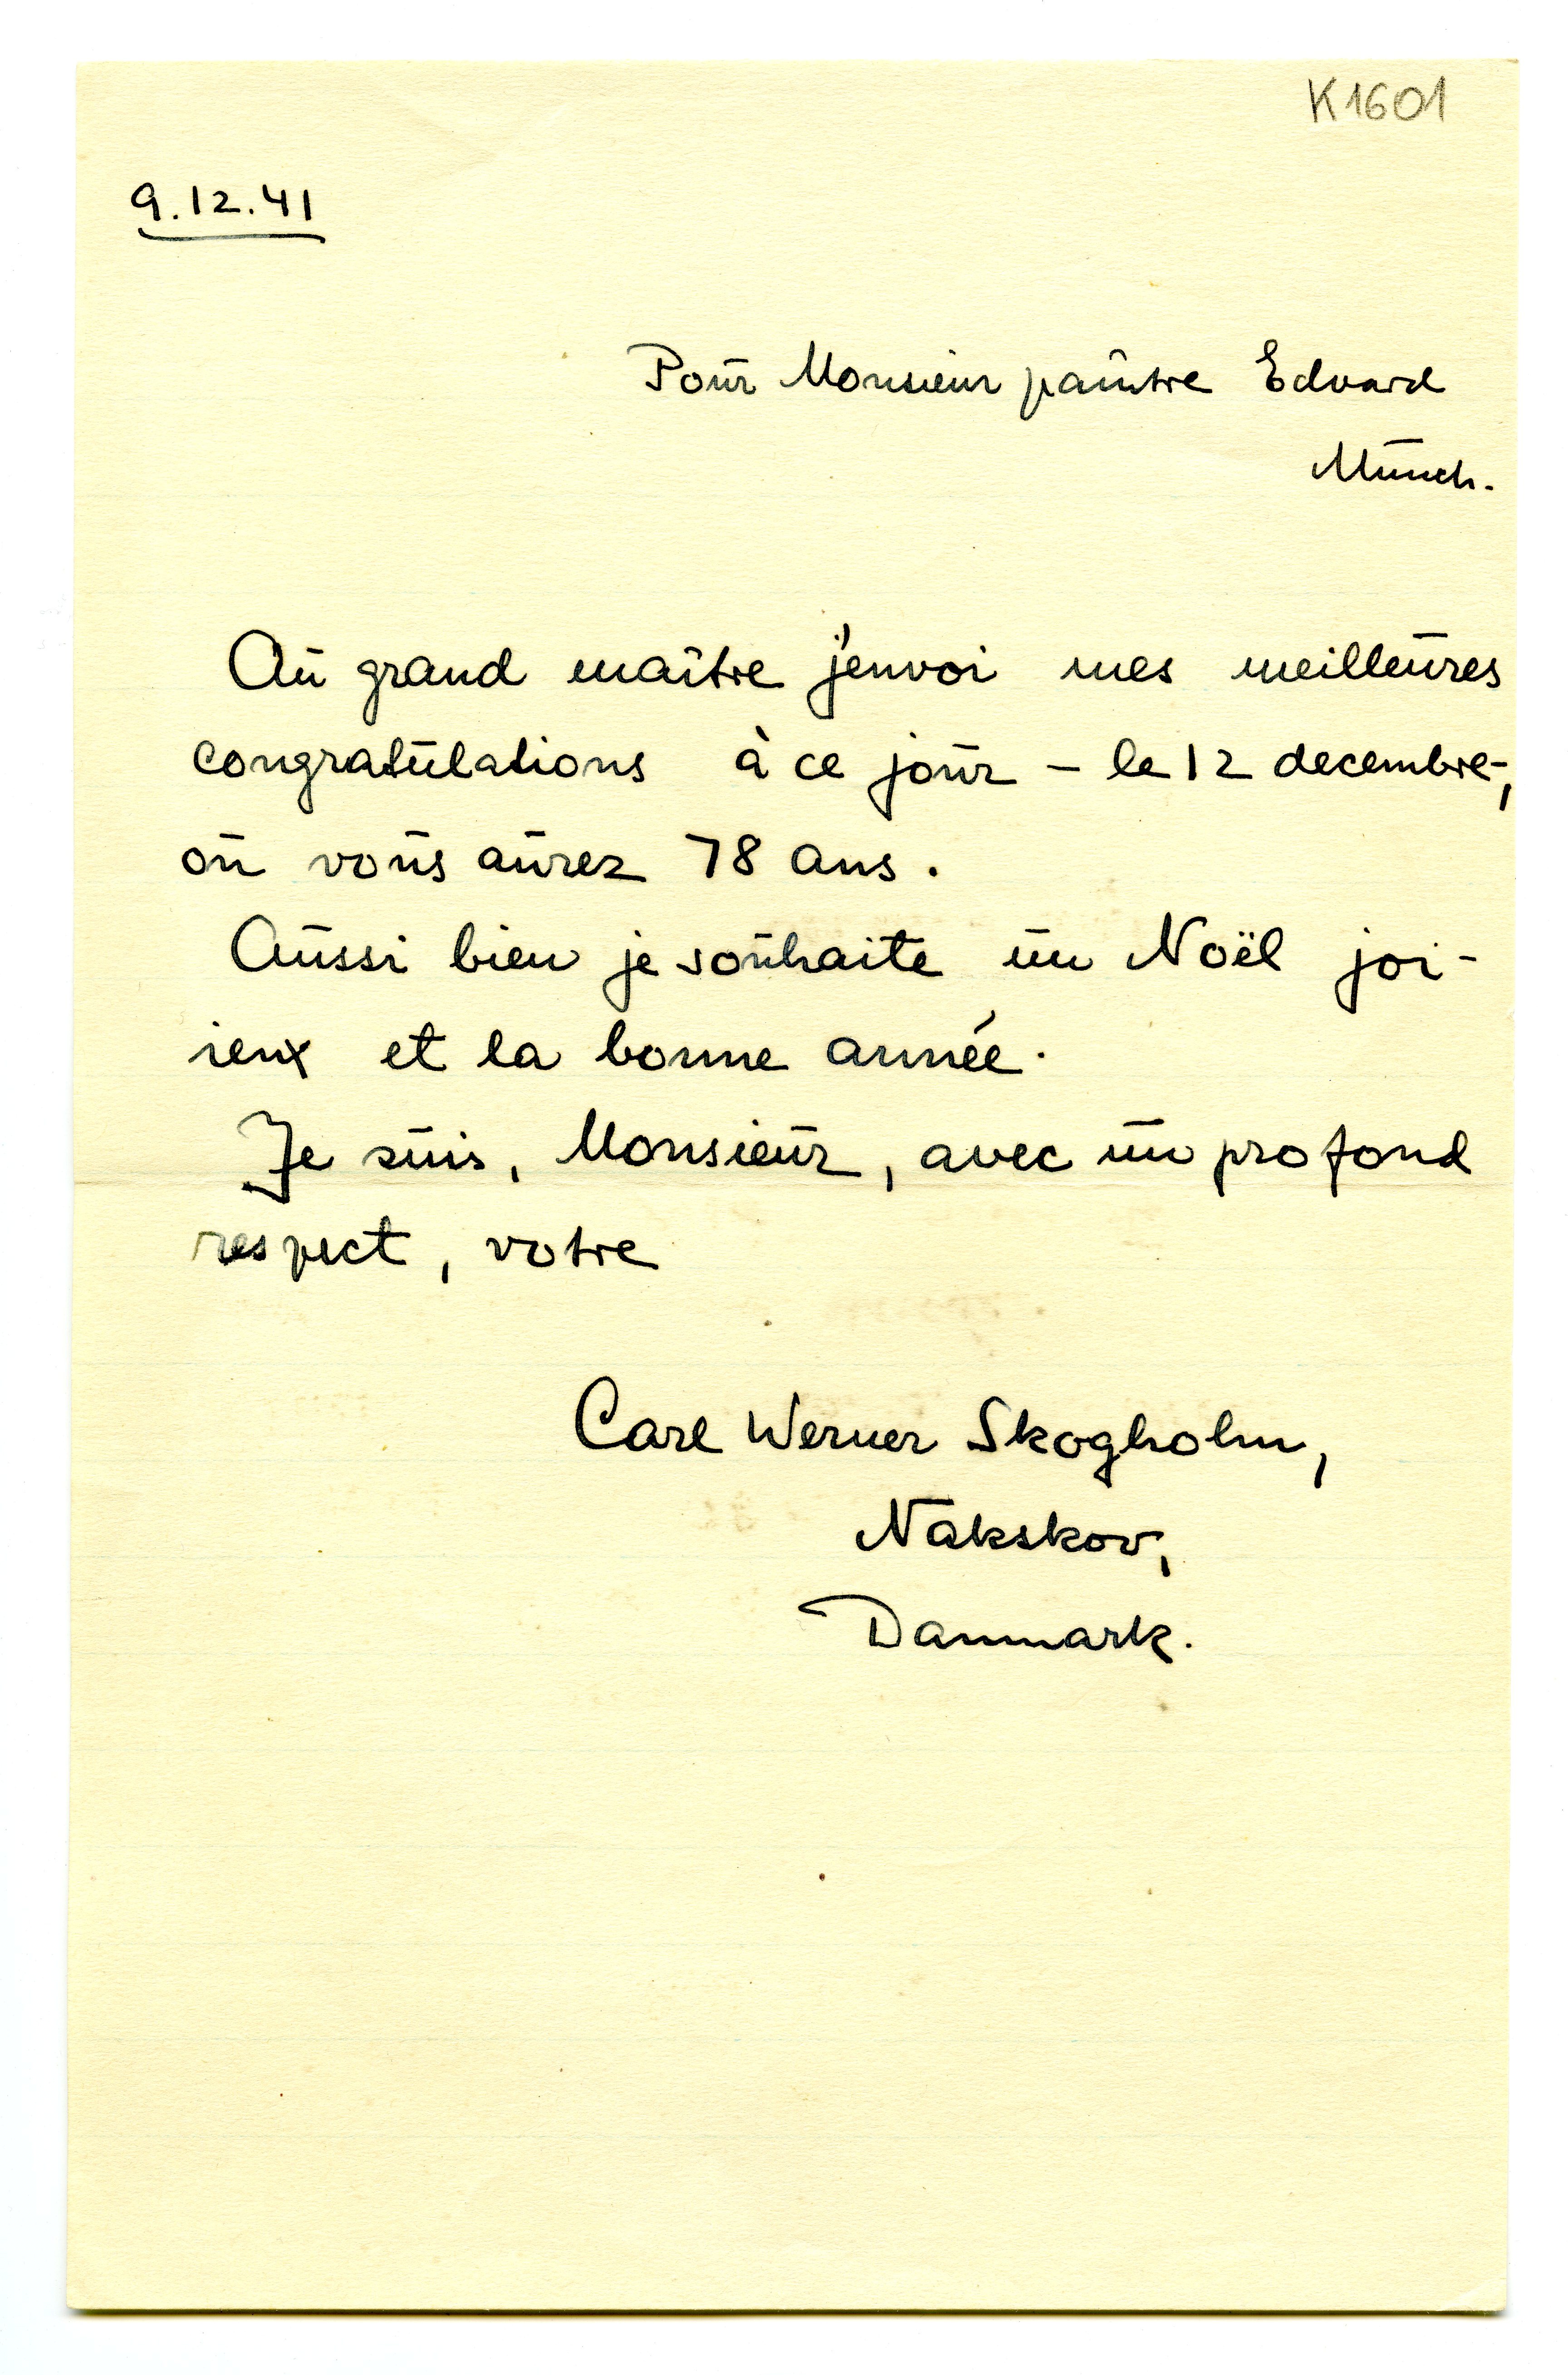 K1601
9.12.41
Pour Monsieur paintre Edvard
Munch.
Au grand maître j'envoi mes meilleures
congratulations à ce jour – le 12 decembre –,
ou vous aurez 78 ans.
Aussi bien je souhaite un Noël joi-
ieux et la bonne année.
Je suis, Monsieur, avec un profond
respect, votre
Carl Werner Skogholm,
Nakskov,
Danmark.